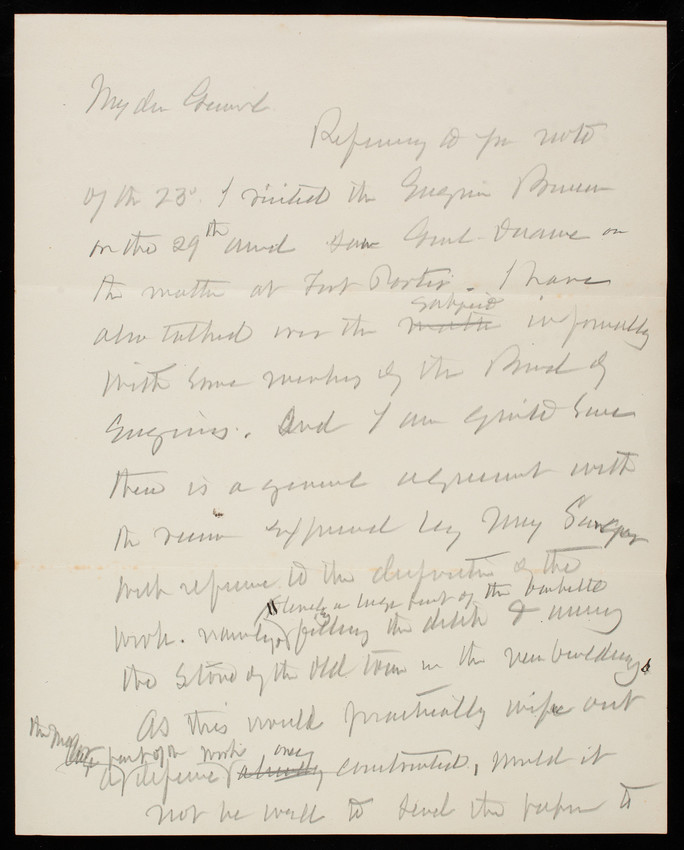 My dear General
Referring to your note
of the 23d. I visited the Engineer Bureau
on the 29th and saw Genl. Duane on
the matter at Fort Porter. I have
also talked over the matter subject informally
with some members of the Board of
Engineers. And I am quite sure
there is a general agreement with
the views expressed by
with reference to the disposition of the
work. namely, level a large part of the barbette filling the ditch & using
the stone of the old tower in the new building.
As this would practically wipe out
the part of the work
of defense already once constructed, would it
not be well to send the papers to